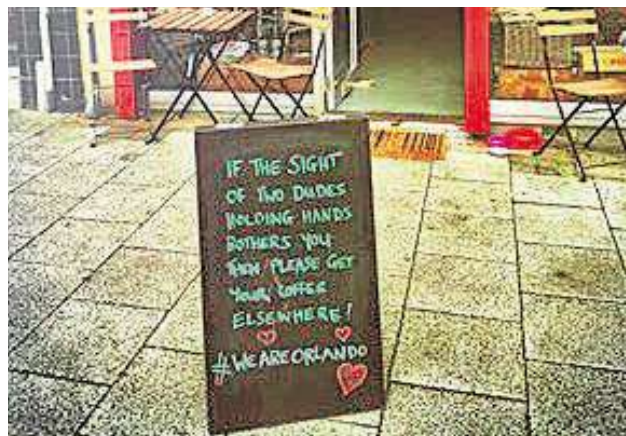 IF THE SIGHT
OF TWO DUDES
HOLDING HANDS
BOTHERS YOU
THEN PLEASE GET
YOUR COFFEE
ELSEWHERE!
#WEAREORLANDO